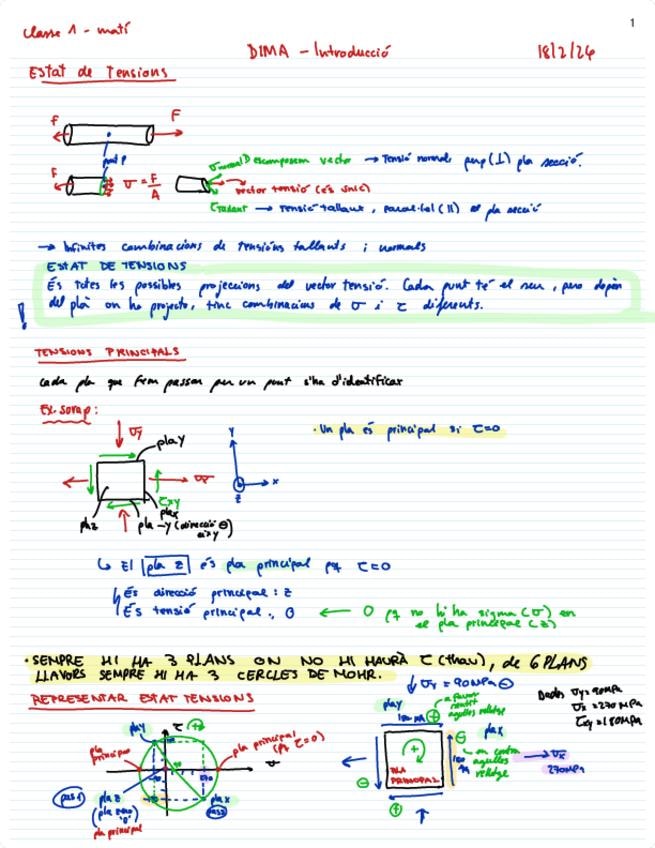 1
Classe 1 - matí
DIMA - Introducció
18/2/26
Estat de Tensions
F
F
punt P
F
σ = F/A
σnormal Descomposem vector → Tensió normal, perp (⊥) pla secció.
vector tensió (és únic)
→ Tensió tallant, paral·lel (||) al pla secció
→ Infinites combinacions de tensions tallants i normals
ESTAT DE TENSIONS
És totes les possibles projeccions del vector tensió. Cada punt té el seu, però depèn
! del pla on ho projecto, tinc combinacions de σ i τ diferents.
TENSIONS PRINCIPALS
Cada pla que fem passar per un punt s'ha d'identificar
Ex. sorap:
· Un pla és principal si τ=0
σy
pla y
y
σx
x
τxy
z
pla x
pla z
pla -y (direcció ⊖ eix y)
↳ El pla z és pla principal pq τ=0
És direcció principal: z
És tensió principal: 0 ← 0 pq no hi ha sigma (σ) en
el pla principal (z)
· SEMPRE HI HA 3 PLANS ON NO HI HAURÀ τ (thau), de 6 PLANS
LLAVORS SEMPRE HI HA 3 CERCLES DE MOHR.
REPRESENTAR ESTAT TENSIONS
↓ σy = 90MPa ⊖
Dades σy=90MPa
σx=270MPa
τxy=180MPa
pla y
a favor
sentit
agulles rellotge
pla x
en contra
agulles
rellotge
σx
270MPa
PLA
PRINCIPAL
pla y
τ
pla principal
pla principal
(pq τ=0)
σ
pas 1
pla z
pla principal
pla x
pas 2